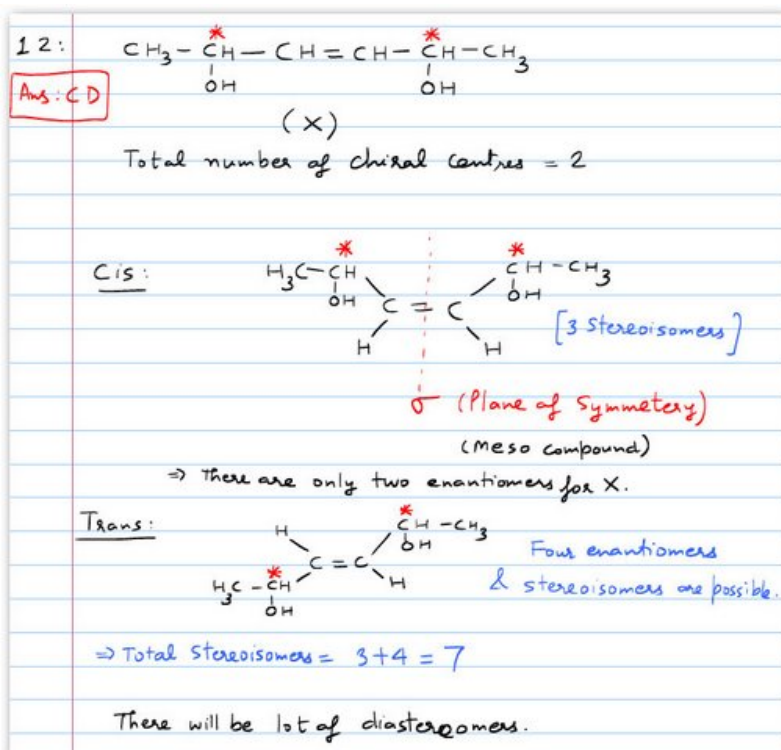 12: CH3 - CH - CH = CH - CH - CH3
* *
OH OH
Ans: CD
(X)
Total number of chiral centres = 2
Cis: H3C-CH * CH-CH3 *
OH OH
C = C
H H
[3 Stereoisomers]
σ (Plane of Symmetery)
(Meso compound)
⇒ There are only two enantiomers for X.
Trans: H CH-CH3 *
OH
C = C
H3C-CH * H
OH
Four enantiomers
& stereoisomers are possible.
⇒ Total Stereoisomers = 3+4 = 7
There will be lot of diastereomers.